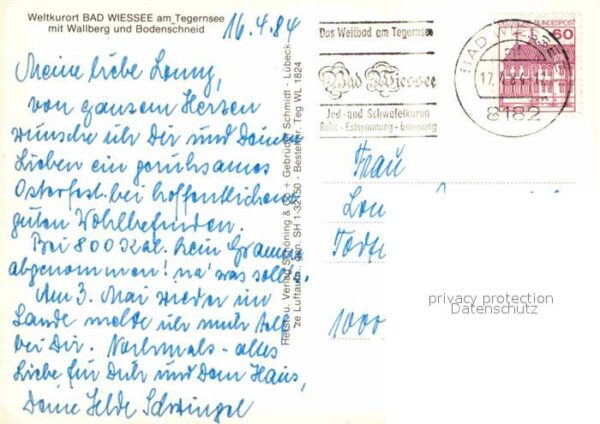 Weltkurort BAD WIESSEE am Tegernsee
mit Wallberg und Bodenschneid
16.4.84
Meine liebe Lonny,
von ganzem Herzen
wünsche ich Dir und Deinen
Lieben ein geruhsames
Osterfest bei hoffentlichem
guten Wohlbefinden.
Bei 800 Kal. kein Gramm
abgenommen! na' was solls.
Am 3. Mai wieder im
Lande melde ich mich
bei Dir. Nochmals - alles
Liebe für Dich und Dein Haus,
Deine Hilde Schwingel
Herst. u. Verlag Schöning & Co + Gebrüder Schmidt - Lübeck
ze Luftaufn. gen. SH 1-32150 - Bestellnr. Teg WL 1824
Das Weltbad am Tegernsee
Bad Wiessee
Jod- und Schwefelkuren
Ruhe - Entspannung - Genesung
BAD WIESSEE
17.
8182
BUNDESPOST
60
Frau
Lon
1000
privacy protection
Datenschutz